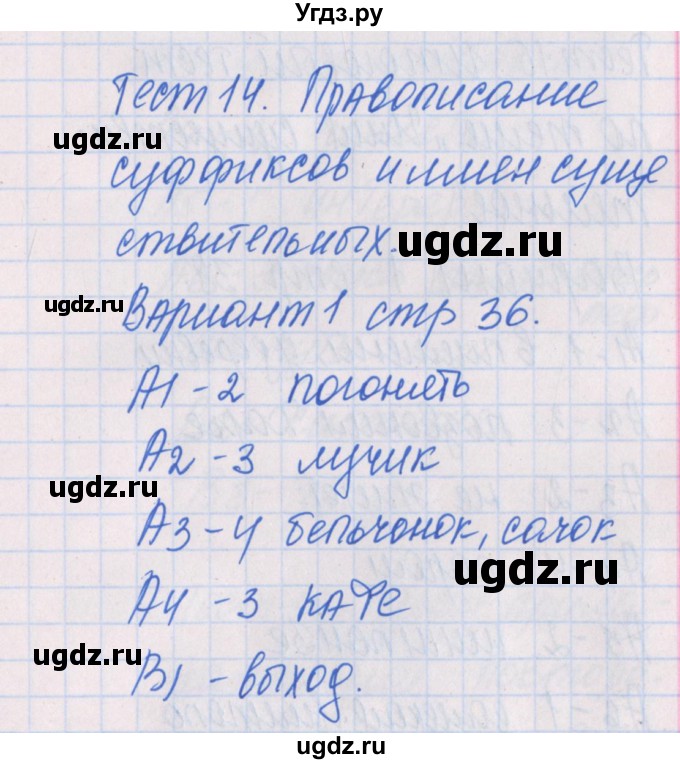 Угдз.ру
Тест 14. Правописание
ugdz.ru
суффиксов имен суще
ствительных.
ugdz.ru
ugdz.ru
Вариант 1 стр 36.
А1 - 2 погонять
А2 - 3 лучик
ugdz.ru
А3 - 4 бельчонок, сачок
ugdz.ru
А4 - 3 кафе
ugdz.ru
В1 - выход.
ugdz.ru